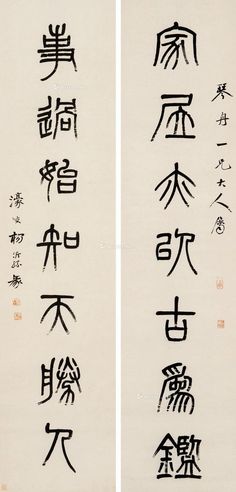 琴舟一兄大人屬
家居亦以古為鑑
事過始知天勝人
濠叟楊沂孫篆